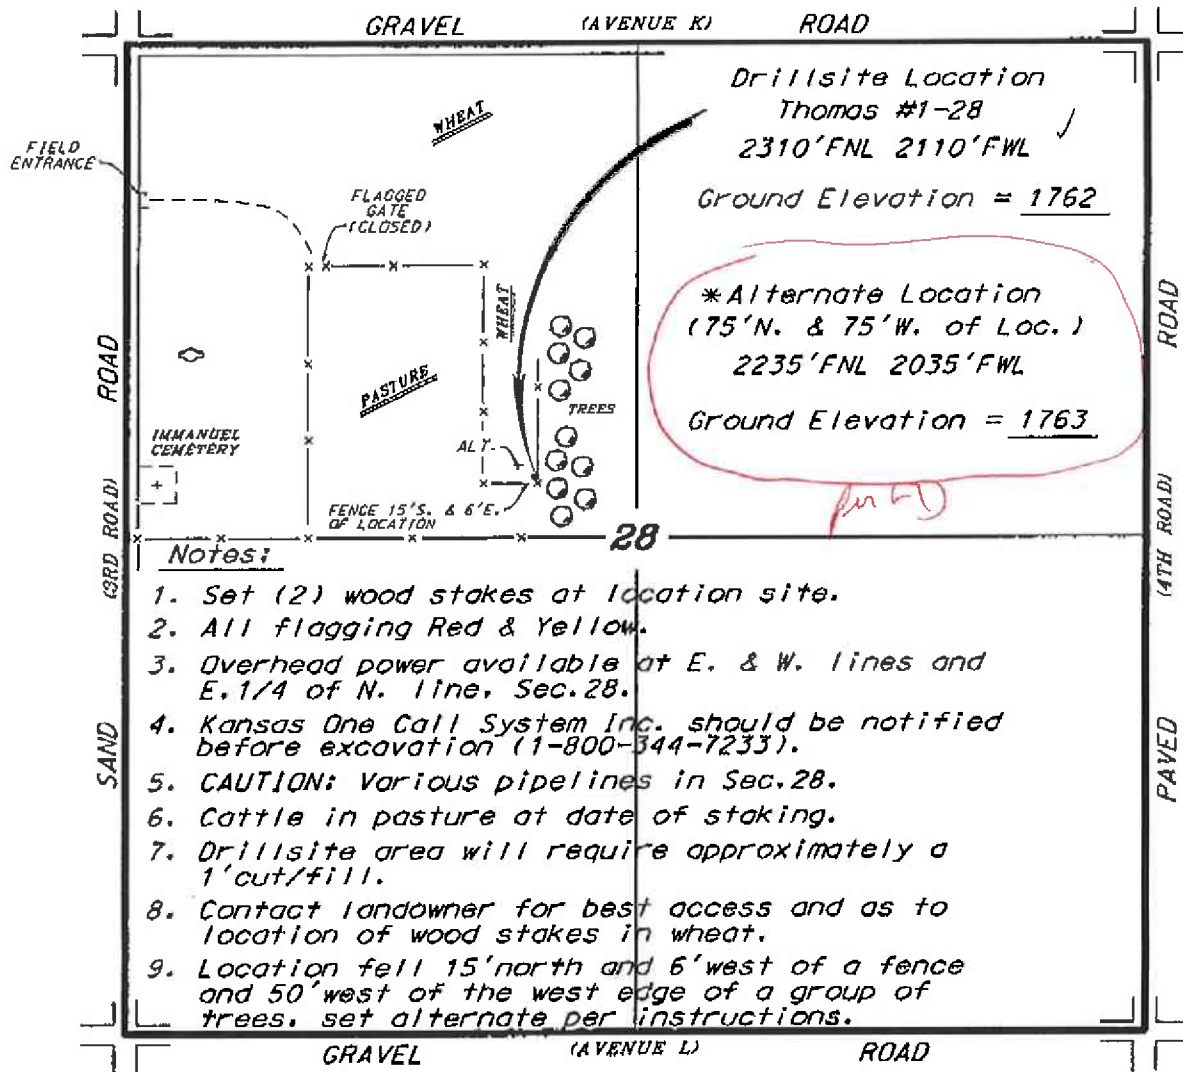 GRAVEL (AVENUE K) ROAD
Drillsite Location
Thomas #1-28
2310'FNL 2110'FWL
Ground Elevation = 1762
*Alternate Location
(75'N. & 75'W. of Loc.)
2235'FNL 2035'FWL
Ground Elevation = 1763
WHEAT
FIELD
ENTRANCE
FLAGGED
GATE
(CLOSED)
WHEAT
PASTURE
TREES
ALT.
IMMANUEL
CEMETERY
FENCE 15'S. & 6'E.
OF LOCATION
28
SAND (3RD ROAD) ROAD
PAVED (4TH ROAD) ROAD
Notes:
1. Set (2) wood stakes at location site.
2. All flagging Red & Yellow.
3. Overhead power available at E. & W. lines and
E.1/4 of N. line, Sec.28.
4. Kansas One Call System Inc. should be notified
before excavation (1-800-344-7233).
5. CAUTION: Various pipelines in Sec.28.
6. Cattle in pasture at date of staking.
7. Drillsite area will require approximately a
1'cut/fill.
8. Contact landowner for best access and as to
location of wood stakes in wheat.
9. Location fell 15'north and 6'west of a fence
and 50'west of the west edge of a group of
trees. set alternate per instructions.
GRAVEL (AVENUE L) ROAD